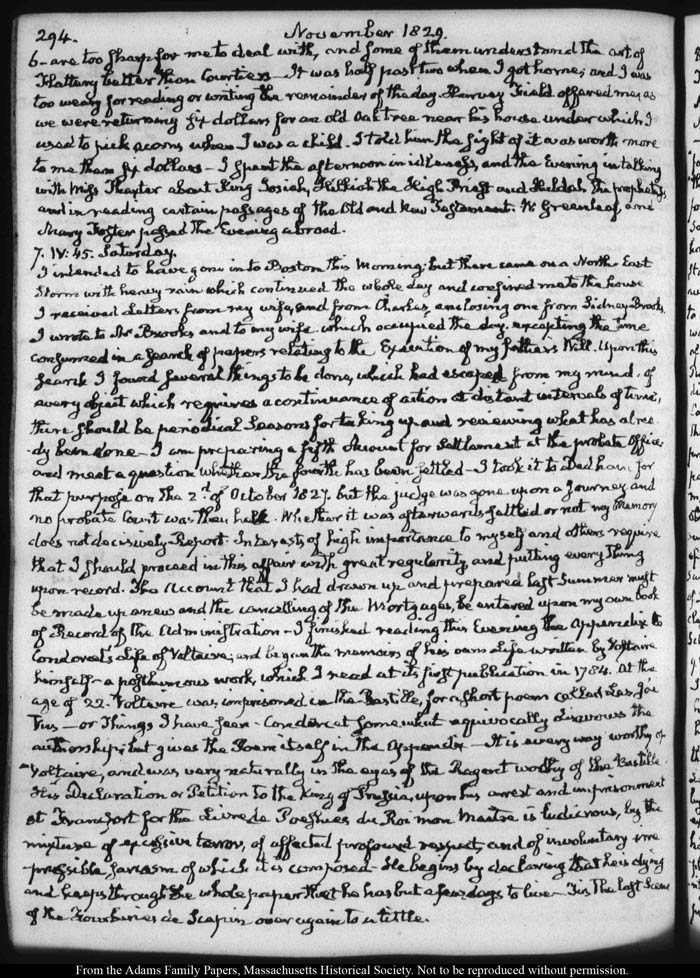 294.
November 1829.
6- are too sharp for me to deal with, and some of them understand the art of
Flattery better than Courtiers - It was half past two when I got home; and I was
too weary for reading or writing the remainder of the day. Harvey Field offered me, as
we were returning six dollars for an old Oak tree near his house under which I
used to pick acorns when I was a child. I told him the sight of it was worth more
to me than six dollars - I spent the afternoon in idleness, and the Evening in talking
with Miss Thaxter about King Josiah, Hilkiah the High Priest and Huldah the prophetess,
and in reading certain passages of the Old and New Testament. Mr Greenleaf, and
Mary Foster passed the Evening abroad.
7. IV: 45. Saturday.
I intended to have gone into Boston this Morning; but there came on a North East
Storm with heavy rain which continued the whole day and confined me to the house
I received Letters from my wife, and from Charles, enclosing one from Sidney Brooks.
I wrote to Mr Brooks and to my wife which occupied the day, excepting the time
consumed in a search of papers relating to the Execution of my father's Will. Upon this
search I found several things to be done, which had escaped from my mind. Of
every object which requires a continuance of action at distant intervals of time,
there should be periodical seasons for taking up and reviewing what has alrea-
dy been done - I am preparing a fifth Account for settlement at the probate Office,
and meet a question whether the fourth has been settled - I took it to Dedham for
that purpose on the 2d. of October 1827. but the judge was gone upon a Journey, and
no probate Court was then held. Whether it was afterwards settled or not my Memory
does not decisively Report. Interests of high importance to myself and others require
that I should proceed in this affair with great regularity, and putting every thing
upon record. The Account that I had drawn up and prepared last Summer must
be made up anew and the cancelling of the Mortgages, be entered upon my own book
of Record of the Administration - I finished reading this Evening the Appendix to
Condorcet's Life of Voltaire; and began the memoirs of his own Life written by Voltaire
himself - a posthumous work, which I read at its first publication in 1784. At the
age of 22. Voltaire was imprisoned in the Bastille, for a short poem called Les J'ai
Vus - or Things I have seen - Condorcet somewhat equivocally disavows the
authorship; but gives the Poem itself in the Appendix - It is every way worthy of
Voltaire, and was very naturally in the eyes of the Regent worthy of the Bastille.
His Declaration or Petition to the King of Prussia, upon his arrest and imprisonment
at Francfort for the Livre de Poeshies du Roi mon Maitre is ludicrous, by the
mixture of excessive terror, of affected profound respect, and of involuntary irre
-pressible sarcasm of which it is composed - He begins by declaring that he is dying
and keeps through the whole paper that he has but a few days to live - Tis the last Scene
of the Fourberies de Scapin over again to a tittle.
From the Adams Family Papers, Massachusetts Historical Society. Not to be reproduced without permission.